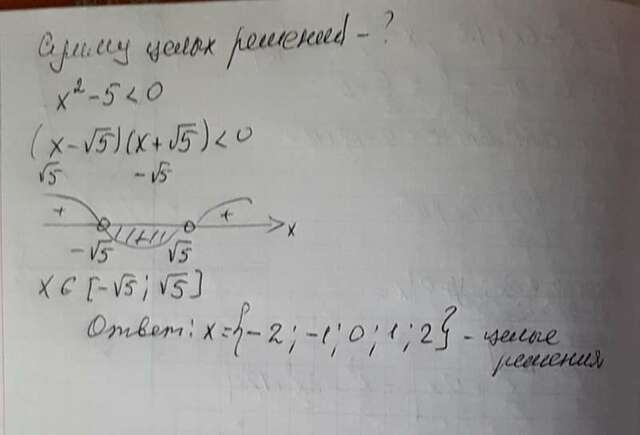 Сумму целых решений - ?
x² - 5 < 0
(x - √5)(x + √5) < 0
√5 -√5
+ + x
-√5 √5
x ∈ [-√5; √5]
Ответ: x = {-2; -1; 0; 1; 2} - целые
решения